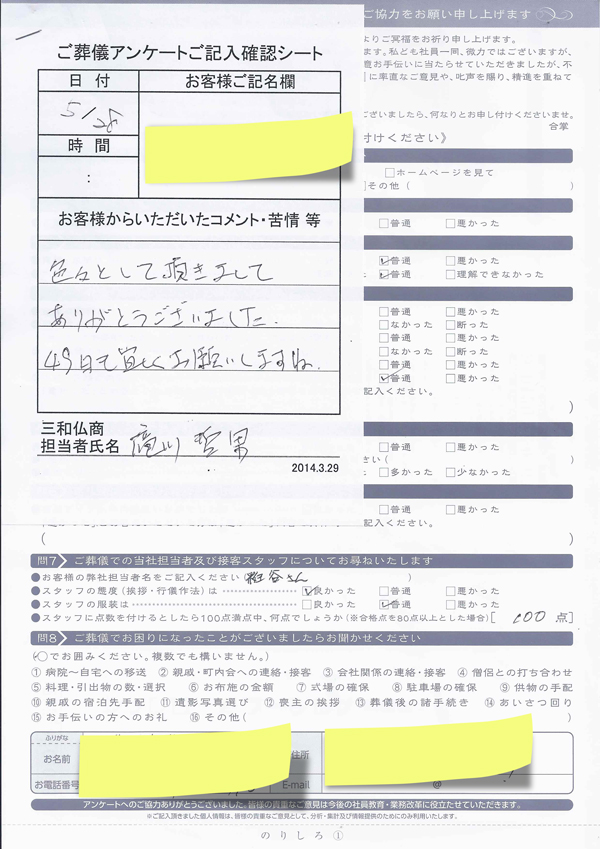 ご協力をお願い申し上げます
ご葬儀アンケートご記入確認シート
日付
お客様ご記名欄
5/28
時間
:
お客様からいただいたコメント・苦情 等
色々として頂きまして
ありがとうございました.
49日も宜しくお願いしますね.
三和仏商
担当者氏名
哲男
2014.3.29
よりご冥福をお祈り申し上げます。
ます。私ども社員一同、微力ではございますが、
意お手伝いに当たらせていただきましたが、不
に率直なご意見や、叱声を賜り、精進を重ねて
ございましたら、何なりとお申し付けくださいませ。
合掌
付けください》
□ホームページを見て
□その他(　)
□普通 □悪かった
□普通 □悪かった
□普通 □理解できなかった
□普通 □悪かった
□なかった □断った
□普通 □悪かった
□なかった □断った
□普通 □悪かった
□普通 □悪かった
記入ください。
)
□普通 □悪かった
さい( )
□多かった □少なかった
□普通 □悪かった
記入ください。
( )
問7 ご葬儀での当社担当者及び接客スタッフについてお尋ねいたします
●お客様の弊社担当者名をご記入ください( さん )
●スタッフの態度(挨拶・行儀作法)は □良かった □普通 □悪かった
●スタッフの服装は □良かった □普通 □悪かった
●スタッフに点数を付けるとしたら100点満点中、何点でしょうか(※合格点を80点以上とした場合)[ 100 点]
問8 ご葬儀でお困りになったことがございましたらお聞かせください
(○でお囲みください。複数でも構いません。)
①病院～自宅への移送 ②親戚・町内会への連絡・接客 ③会社関係の連絡・接客 ④僧侶との打ち合わせ
⑤料理・引出物の数・選択 ⑥お布施の金額 ⑦式場の確保 ⑧駐車場の確保 ⑨供物の手配
⑩親戚の宿泊先手配 ⑪遺影写真選び ⑫喪主の挨拶 ⑬葬儀後の諸手続き ⑭あいさつ回り
⑮お手伝いの方へのお礼 ⑯その他( )
ふりがな
お名前
住所
お電話番号
E-mail
@
アンケートへのご協力ありがとうございました。皆様の貴重なご意見は今後の社員教育・業務改革に役立たせていただきます。
※ご記入頂きました個人情報は、皆様の貴重なご意見として、分析・集計及び情報提供のためにのみ利用いたします。
のりしろ①